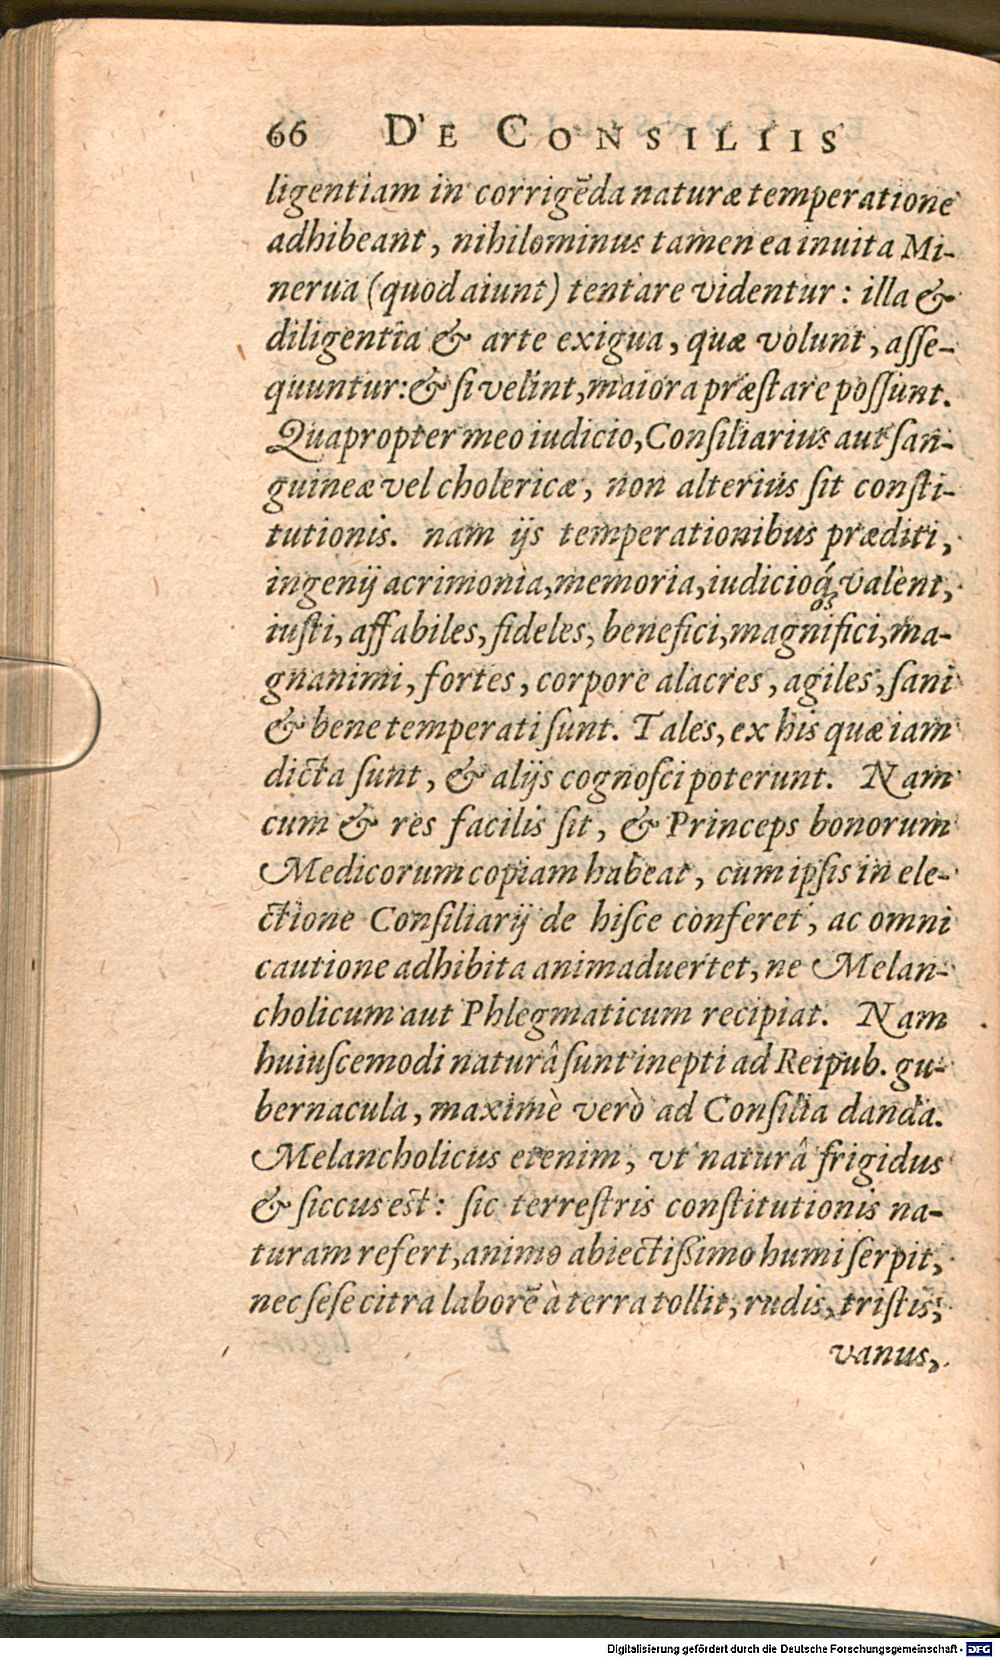 66 DE CONSILIIS
ligentiam in corrigēda naturæ temperatione
adhibeant, nihilominus tamen ea inuita Mi-
nerua (quod aiunt) tentare videntur: illa &
diligentia & arte exigua, quæ volunt, aſſe-
quuntur: & ſi velint, maiora præſtare poſſunt.
Quapropter meo iudicio, Conſiliarius aut ſan-
guineæ vel cholericæ, non alterius ſit conſti-
tutionis. nam ijs temperationibus præditi,
ingenij acrimonia, memoria, iudicioq́; valent,
iuſti, affabiles, fideles, benefici, magnifici, ma-
gnanimi, fortes, corpore alacres, agiles, ſani
& bene temperati ſunt. Tales, ex his quæ iam
dicta ſunt, & alijs cognoſci poterunt. Nam
cum & res facilis ſit, & Princeps bonorum
Medicorum copiam habeat, cum ipſis in ele-
ctione Conſiliarij de hiſce conferet, ac omni
cautione adhibita animaduertet, ne Melan-
cholicum aut Phlegmaticum recipiat. Nam
huiuſcemodi naturâ ſunt inepti ad Reipub. gu-
bernacula, maximè verò ad Conſilia danda.
Melancholicus etenim, vt naturâ frigidus
& ſiccus est: ſic terreſtris conſtitutionis na-
turam refert, animo abiectißimo humi ſerpit,
nec ſeſe citra laborē à terra tollit, rudis, triſtis,
vanus,
Digitalisierung gefördert durch die Deutsche Forschungsgemeinschaft - DFG